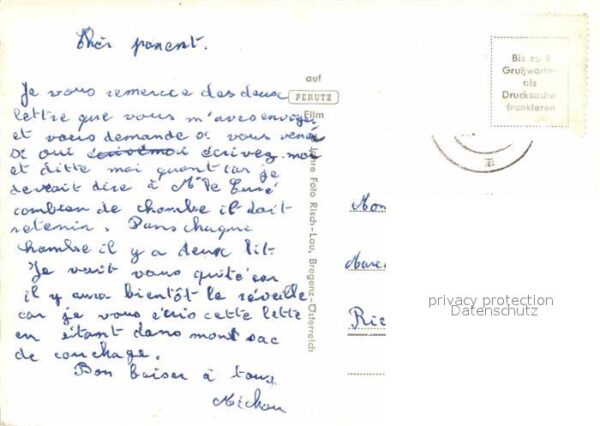 Chèr parent.
Je vous remercie des deux
lettre que vous m'aves envoyér
et vous demande si vous venez
Si oui écrivez-moi
et ditte moi quant car je
devrait dire à Mr le Curé
combien de chambre il doit
retenir. Dans chaque
chambre il y a deux lit.
Je vait vous quité car
il y aura bientôt le réveille
car je vous écris cette lette
en étant dans mont sac
de couchage.
Bon baiser à tous
Michou
auf
PERUTZ
Film
Jahre Foto Risch-Lau, Bregenz-Österreich
Bis zu 5
Grußworten
als
Drucksache
frankieren
Mon
Ric
privacy protection
Datenschutz